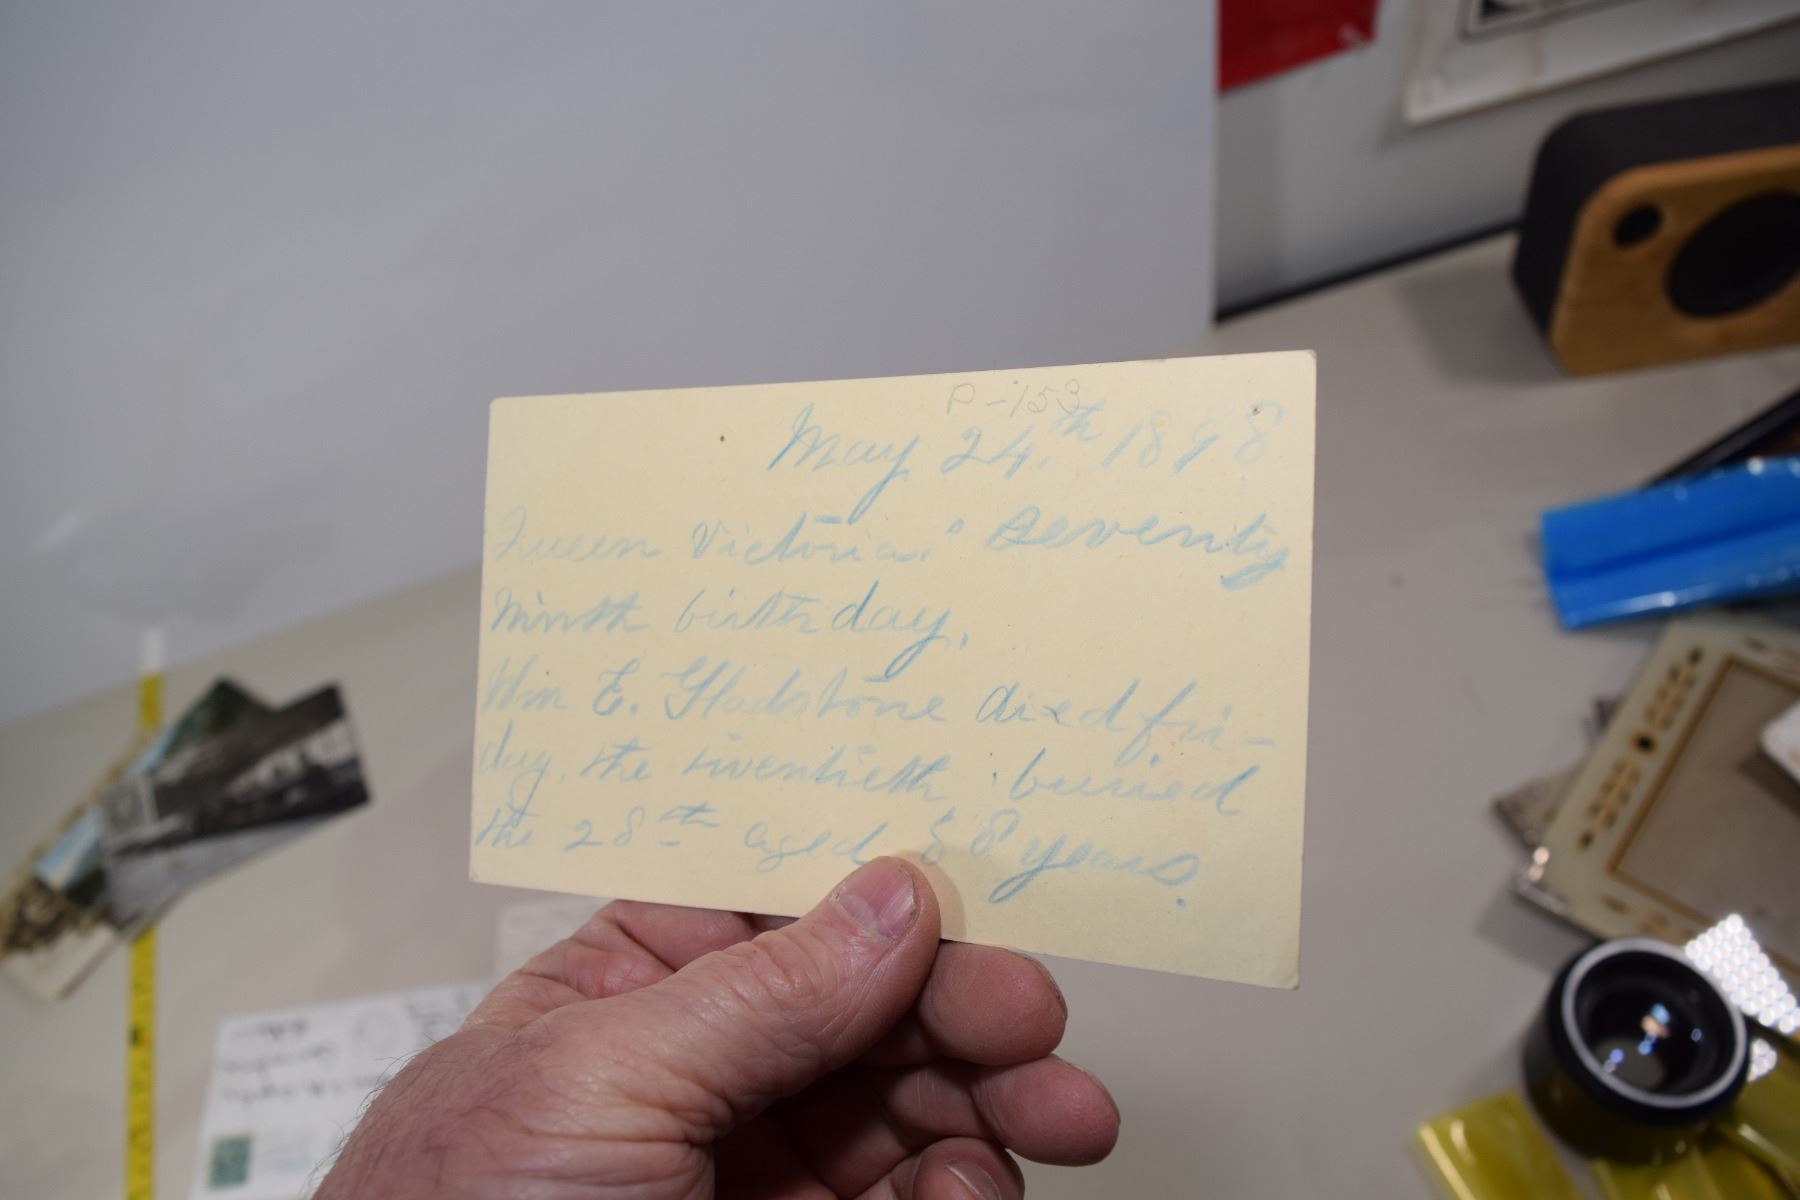 P-153
May 24.th 1898
Queen Victorias' Seventy
Ninth birthday.
Wm E. Gladstone died fri-
day, the twentieth, buried
the 28th aged 88 years.